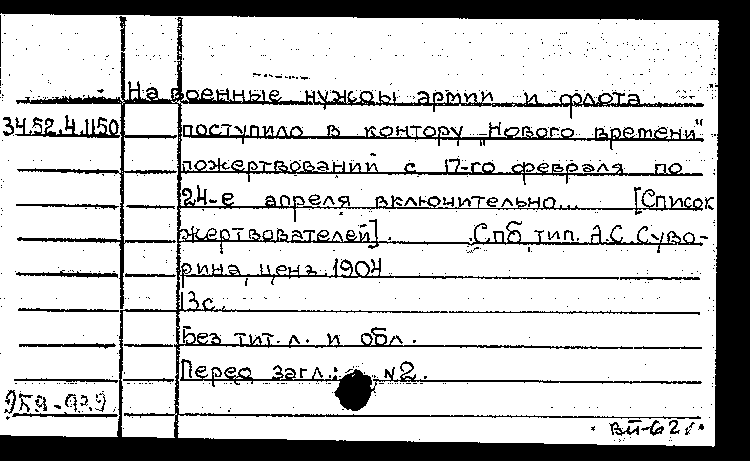 На военные нужды армии и флота
34.52.4.1150 поступило в контору „Нового времени"
пожертвований с 17-го февраля по
24-е апреля включительно... [Список
жертвователей]. Спб, тип. А.С. Суво-
рина, ценз. 1904
13с.
Без тит. л. и обл.
Перед загл.: №2.